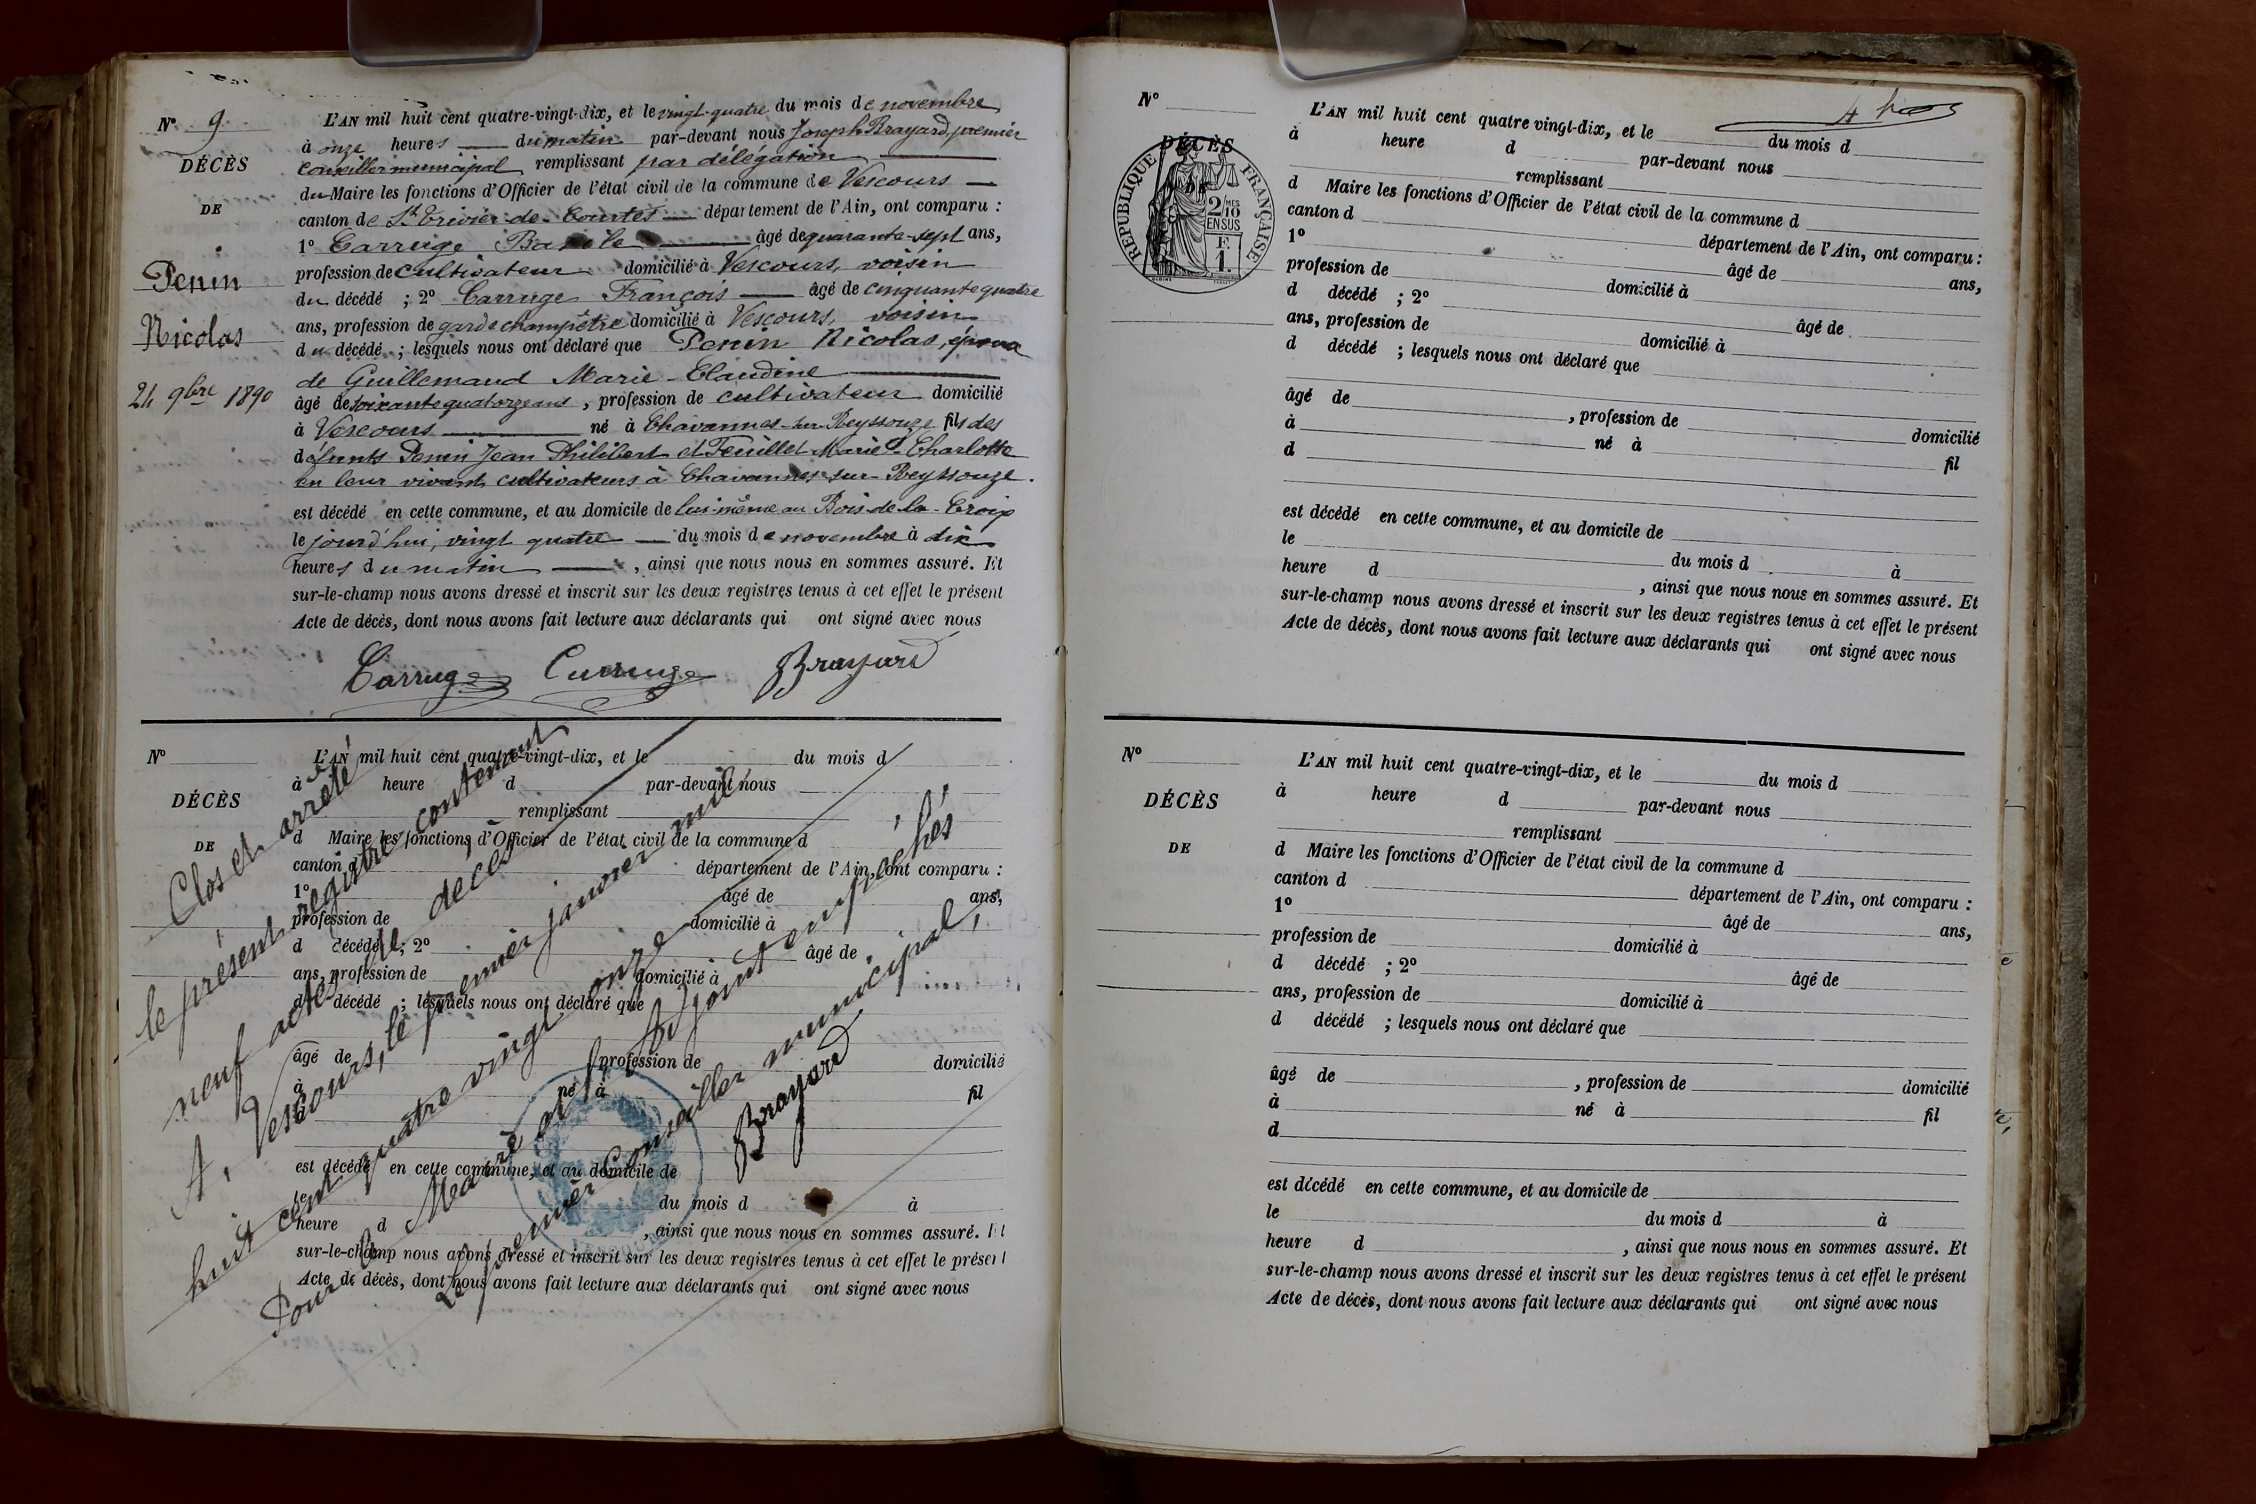 N° 9
DÉCÈS
DE
Penin
Nicolas
24 9bre 1890
L'AN mil huit cent quatre-vingt-dix, et le vingt-quatre du mois de novembre
à onze heures du matin par-devant nous Joseph Brayard, premier
conseiller municipal remplissant par délégation
du Maire les fonctions d'Officier de l'état civil de la commune de Vescours
canton de St Trivier-de-Courtes département de l'Ain, ont comparu :
1° Carruge Basile âgé de quarante-sept ans,
profession de cultivateur domicilié à Vescours, voisin
du décédé ; 2° Carruge François âgé de cinquante quatre
ans, profession de garde champêtre domicilié à Vescours, voisin
du décédé ; lesquels nous ont déclaré que Penin Nicolas, époux
de Guillemaud Marie-Claudine
âgé de soixante quatorze ans, profession de cultivateur domicilié
à Vescours né à Chavannes-sur-Reyssouze fils des
défunts Penin Jean Philibert et Feuillet Marie-Charlotte
en leur vivant cultivateurs à Chavannes-sur-Reyssouze.
est décédé en cette commune, et au domicile de lui-même au Bois-de-la-Croix
le jourd'hui, vingt quatre du mois de novembre à dix
heures du matin , ainsi que nous nous en sommes assuré. Et
sur-le-champ nous avons dressé et inscrit sur les deux registres tenus à cet effet le présent
Acte de décès, dont nous avons fait lecture aux déclarants qui ont signé avec nous
Carruge Carruge Brayard
N°
DÉCÈS
DE
L'AN mil huit cent quatre-vingt-dix, et le du mois d
à heure d par-devant nous
remplissant
d Maire les fonctions d'Officier de l'état civil de la commune d
canton d département de l'Ain, ont comparu :
1° âgé de ans,
profession de domicilié à
d décédé ; 2° âgé de
ans, profession de domicilié à
d décédé ; lesquels nous ont déclaré que
âgé de , profession de domicilié
à né à fil
d
est décédé en cette commune, et au domicile de
le du mois d à
heure d , ainsi que nous nous en sommes assuré. Et
sur-le-champ nous avons dressé et inscrit sur les deux registres tenus à cet effet le présent
Acte de décès, dont nous avons fait lecture aux déclarants qui ont signé avec nous
Clos et arrêté
le présent registre contenant
neuf actes de décès
A Vescours, le premier janvier mil
huit cent quatre vingt onze
Pour le Maire et l'Adjoint empêchés,
Le premier Conseiller municipal,
Brayard
N°
DÉCÈS
DE
RÉPUBLIQUE FRANÇAISE
2/10 MES
EN SUS
F.
1.
L'AN mil huit cent quatre vingt-dix, et le du mois d
à heure d par-devant nous
remplissant
d Maire les fonctions d'Officier de l'état civil de la commune d
canton d département de l'Ain, ont comparu :
1° âgé de ans,
profession de domicilié à
d décédé ; 2° âgé de
ans, profession de domicilié à
d décédé ; lesquels nous ont déclaré que
âgé de , profession de domicilié
à né à fil
d
est décédé en cette commune, et au domicile de
le du mois d à
heure d , ainsi que nous nous en sommes assuré. Et
sur-le-champ nous avons dressé et inscrit sur les deux registres tenus à cet effet le présent
Acte de décès, dont nous avons fait lecture aux déclarants qui ont signé avec nous
N°
DÉCÈS
DE
L'AN mil huit cent quatre-vingt-dix, et le du mois d
à heure d par-devant nous
remplissant
d Maire les fonctions d'Officier de l'état civil de la commune d
canton d département de l'Ain, ont comparu :
1° âgé de ans,
profession de domicilié à
d décédé ; 2° âgé de
ans, profession de domicilié à
d décédé ; lesquels nous ont déclaré que
âgé de , profession de domicilié
à né à fil
d
est décédé en cette commune, et au domicile de
le du mois d à
heure d , ainsi que nous nous en sommes assuré. Et
sur-le-champ nous avons dressé et inscrit sur les deux registres tenus à cet effet le présent
Acte de décès, dont nous avons fait lecture aux déclarants qui ont signé avec nous